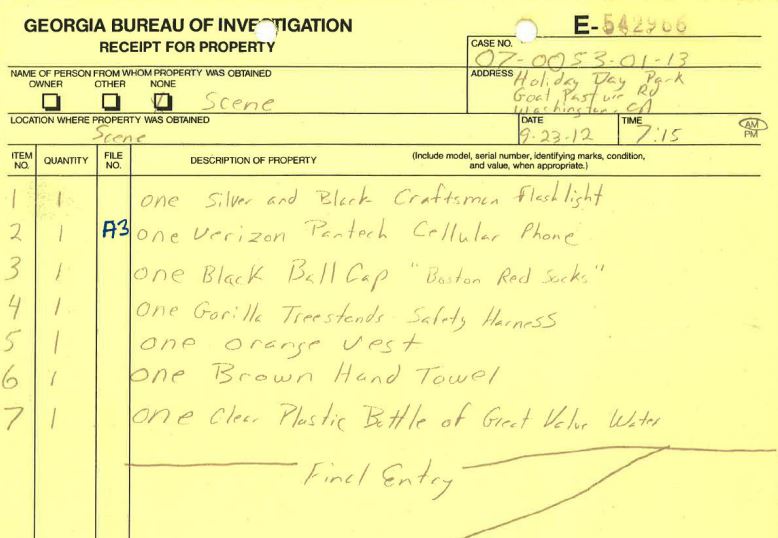 GEORGIA BUREAU OF INVESTIGATION
RECEIPT FOR PROPERTY
E-542966
CASE NO.
07-0053-01-13
NAME OF PERSON FROM WHOM PROPERTY WAS OBTAINED
OWNER OTHER NONE
Scene
ADDRESS Holiday Day Park
Goat Pasture Rd
Washington, GA
LOCATION WHERE PROPERTY WAS OBTAINED
Scene
DATE
9-23-12
TIME
7:15
AM
PM
ITEM NO. QUANTITY FILE NO. DESCRIPTION OF PROPERTY (Include model, serial number, identifying marks, condition, and value, when appropriate.)
1 1 one Silver and Black Craftsman flashlight
2 1 A3 one Verizon Pantech Cellular Phone
3 1 one Black Ball Cap "Boston Red Socks"
4 1 one Gorilla Treestands Safety Harness
5 1 one orange vest
6 1 one Brown Hand Towel
7 1 one Clear Plastic Bottle of Great Value Water
Final Entry